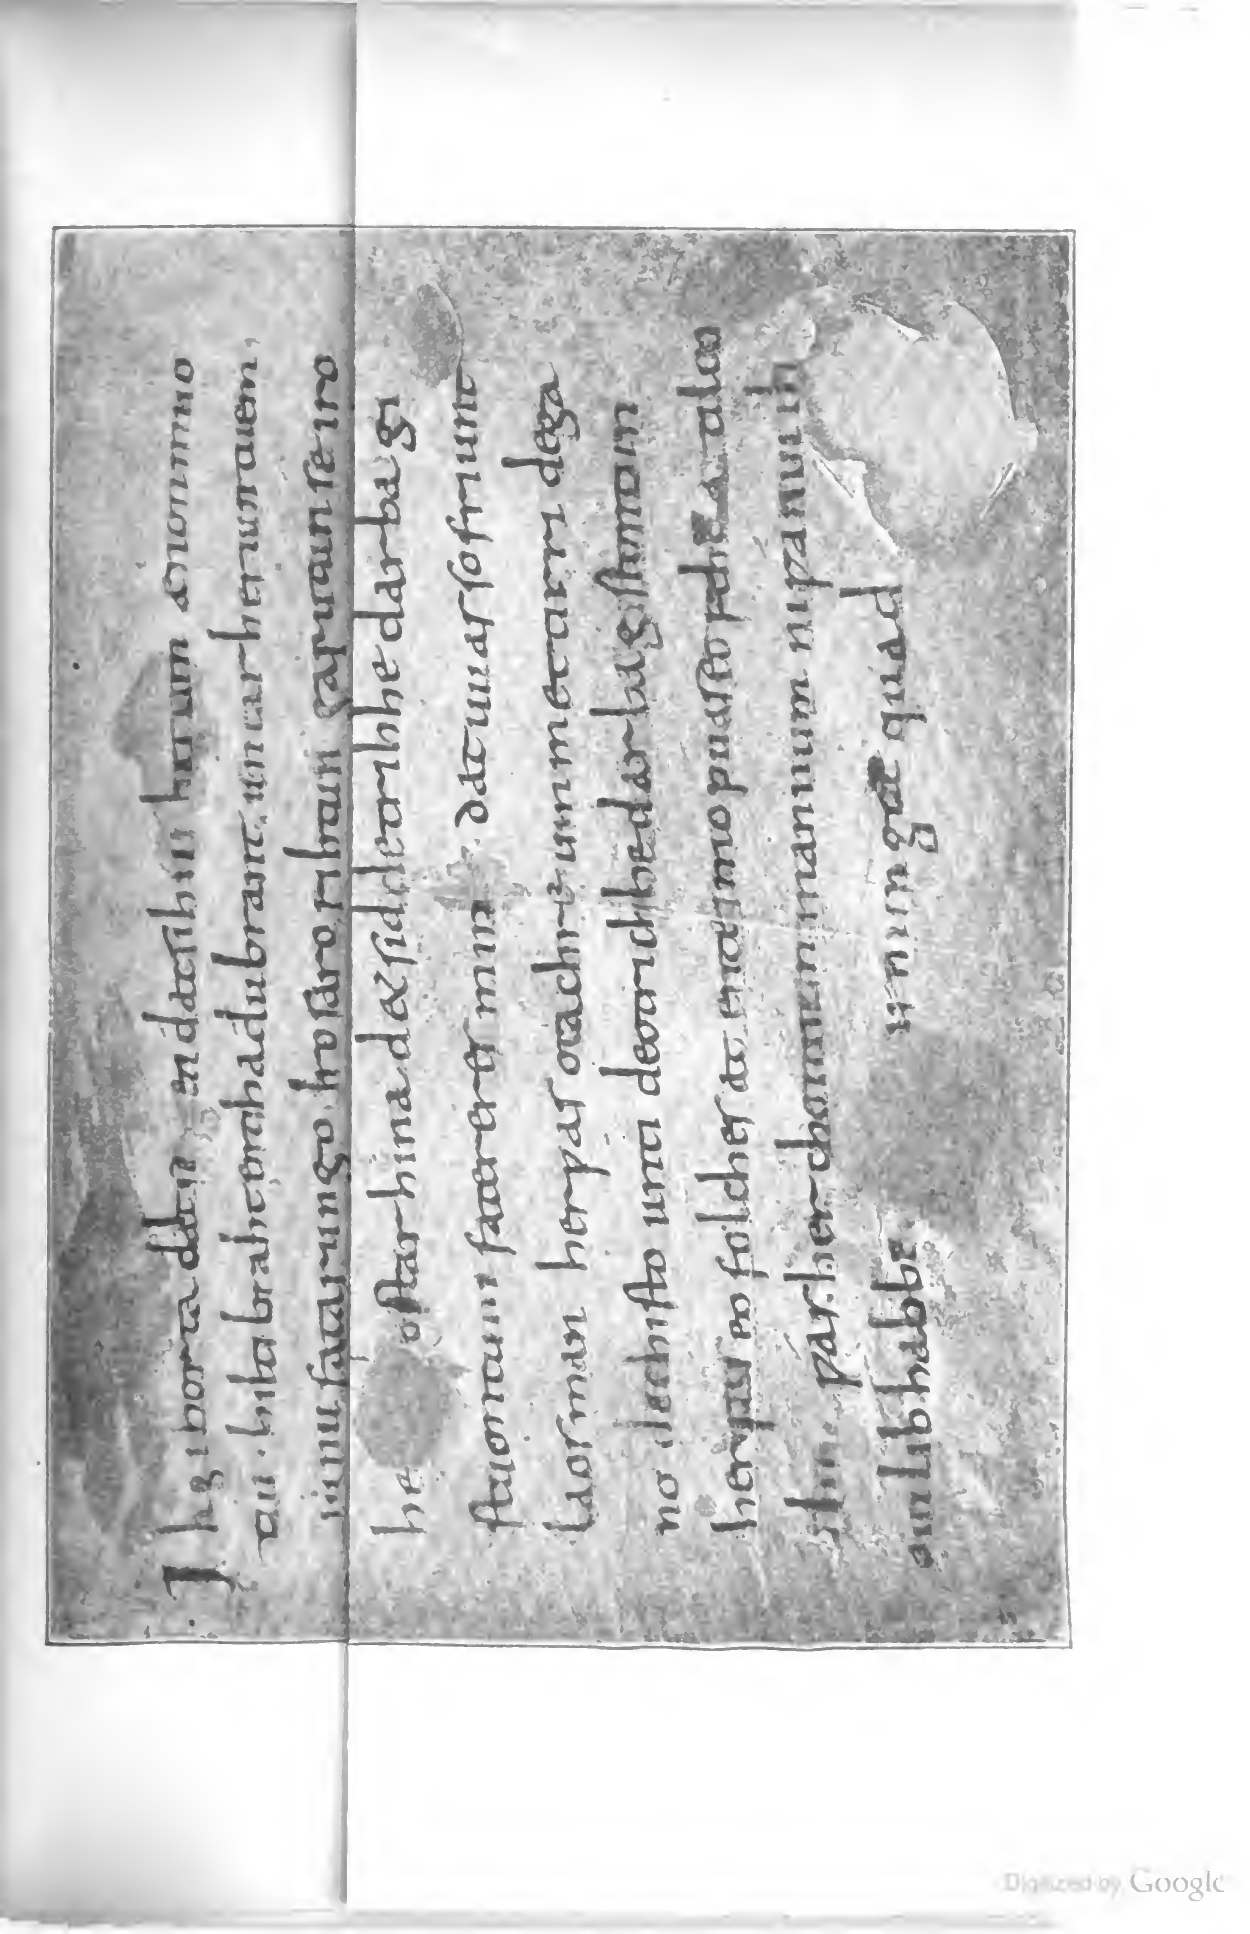 Ik gihorta ðat seggen ðat sih urhettun ænon muo
tin · hiltibraht enti haðubrant · untar heriun tuem,
sunu fatarungo · iro saro rihtun garutun se iro
he ostar hina d& sid detrihhe darba gi
stuontum fateres mines · dat uuas so friunt
laos man her ƿas otachre ummet tirri dega
no dechisto unti deotrichhe darba gistontun
her ƿas eo folches at ente imo ƿuas eo feheta ti leop
chud ƿas her chonnem mannum ni ƿaniu ih
iu lib habbe ƿttu irmingot quad
Digitized by Google